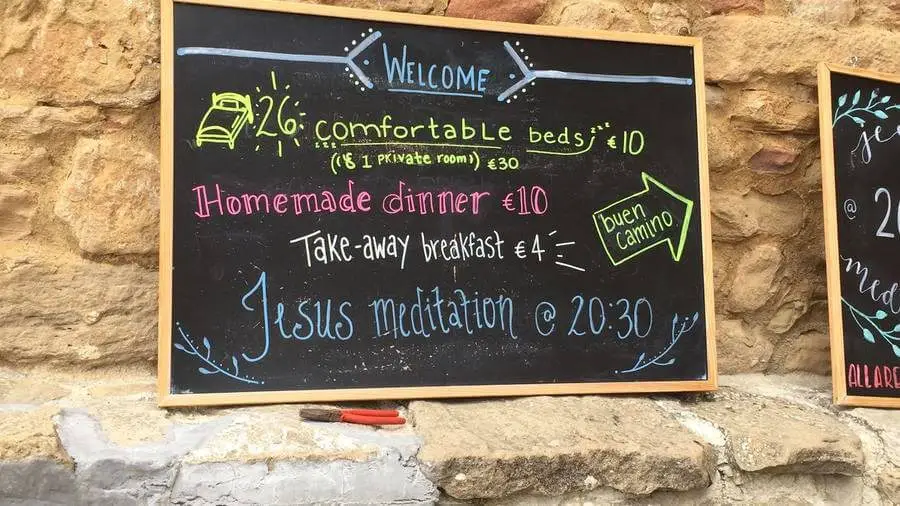 WELCOME
26 comfortable beds zzz €10
zzz
(& 1 private room) €30
Homemade dinner €10
buen
camino
Take-away breakfast €4
Jesus meditation @ 20:30
@
ALL ARE